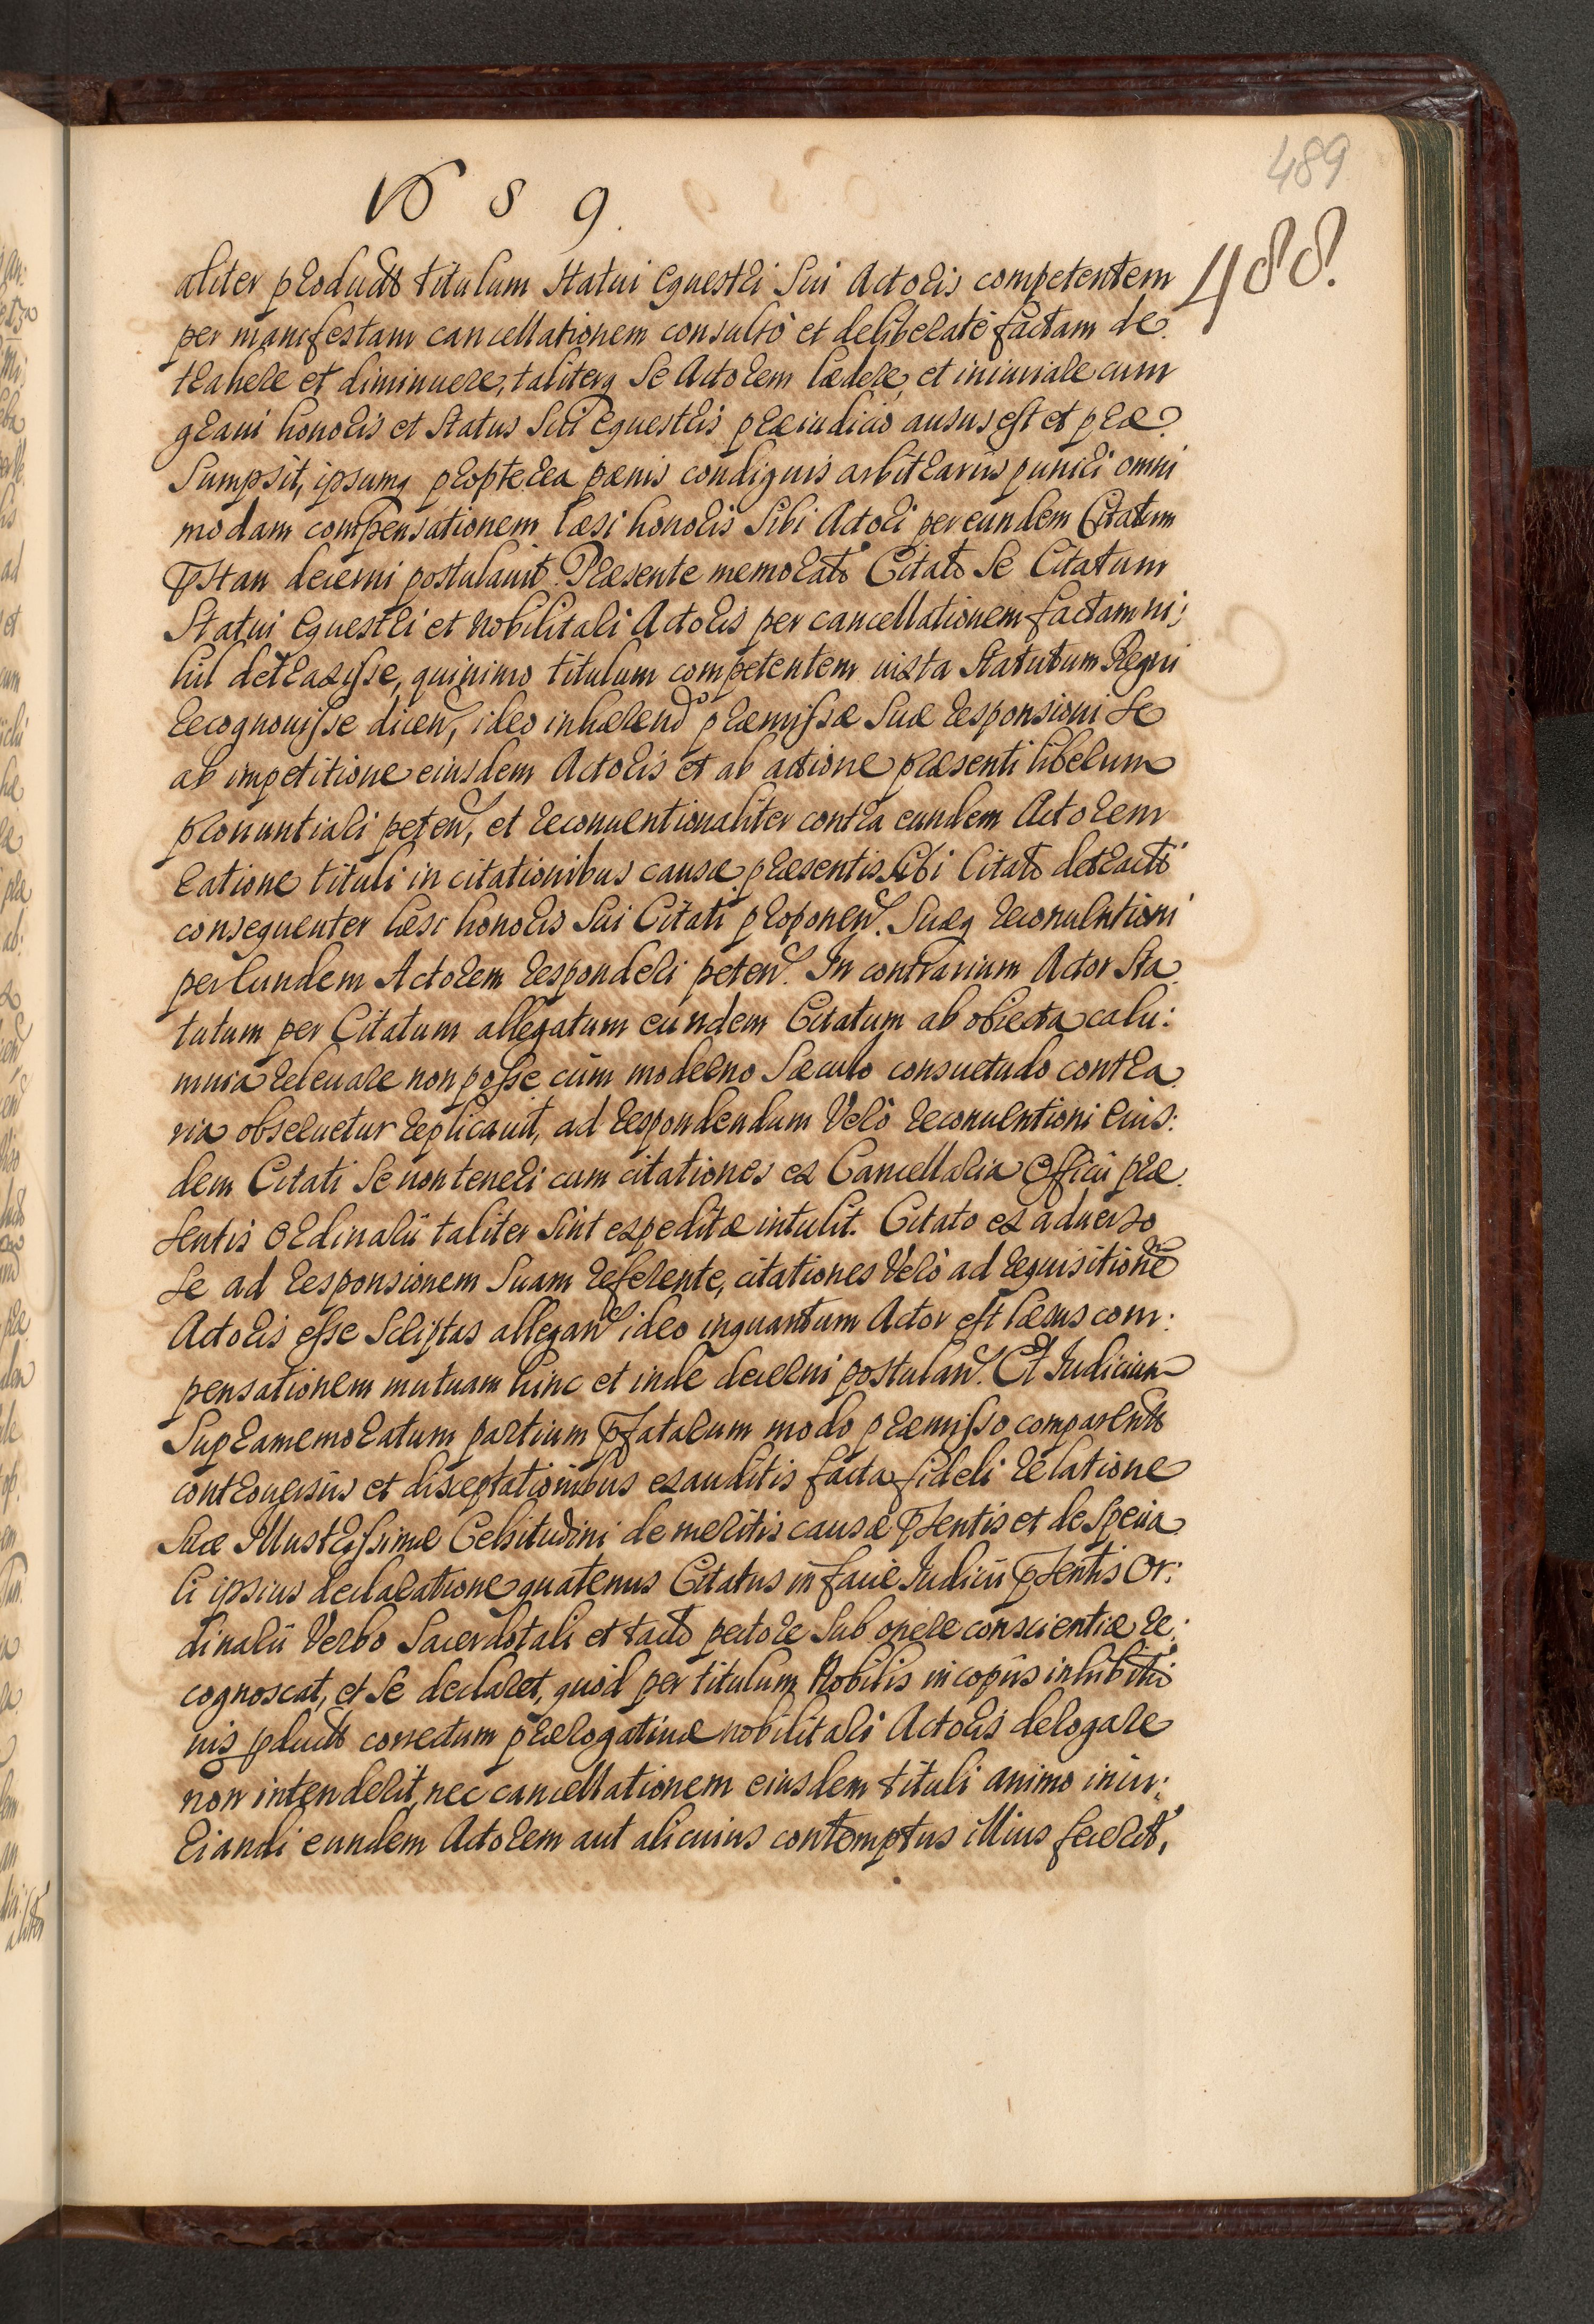 489
1689.
488.
aliter product titulum Statui Equestri Sui Actoris competentem
per manifestam cancellationem consultò et deliberatè factam de
trahere et diminuere, taliterq Se Actorem lædere, et iniuriare cum
graui honoris et Status Sui Equestris præiudicio ausus est et præ
Sumpsit, ipsumq propterea pænis condignis arbitrariis puniri omni
modam compensationem læsi honoris Sibi Actori per eundem Citatum
pstan decerni postulauit. Præsente memorato Citato Se Citatum
Statui Equestri et Nobilitari Actoris per cancellationem factam ni:
hil detraxisse, quinimo titulum competentem iuxta Statutum Regni
recognouisse dicen, ideo inhærendo præmissæ Suæ responsioni Se
ab impetitione eiusdem Actoris et ab actione præsenti liberum
pronuntiari peten, et reconuentionaliter contra eundem Actorem
ratione tituli in citationibus causæ præsentis Sibi Citato detracti
consequenter læsi honoris Sui Citati proponen. Suæq reconuentioni
per Eundem Actorem responderi peten. In contrarium Actor Sta
tutum per Citatum allegatum eundem Citatum ab obiecta calu:
mnia releuare non posse cùm moderno Sæculo consuetudo contra
ria obseruetur replicauit, ad respondendum Verò reconuentioni eius:
dem Citati Se non teneri cum citationes ex Cancellaria Officii præ
sentis Ordinarii taliter sint expeditæ intulit. Citato ex aduerso
se ad responsionem Suam referente, citationes Verò ad requisitionem
Actoris esse Scriptas allegan ideo inquantum Actor est læsus com:
pensationem mutuam hinc et inde decerni postulan. Et Iudicium
Supramemoratum partium pfatarum modo præmisso comparent
controuersiis et disceptationibus exauditis facta fideli relatione
Suæ Illustrissimæ Celsitudini de meritis causæ psentis et de Specia
li ipsius declaratione quatenus Citatus in facie Iudicii psentis Or:
dinarii Verbo Sacerdotali et tacto pectore Sub onere conscientiæ re:
cognoscat, et Se declaret, quòd per titulum Nobilis in copiis inhibitio
nis pduct correctum prærogatiuæ nobilitari Actoris derogare
non intenderit, nec cancellationem eiusdem tituli animo iniu:
riandi eundem Actorem aut alicuius contemptus illius fecerit,